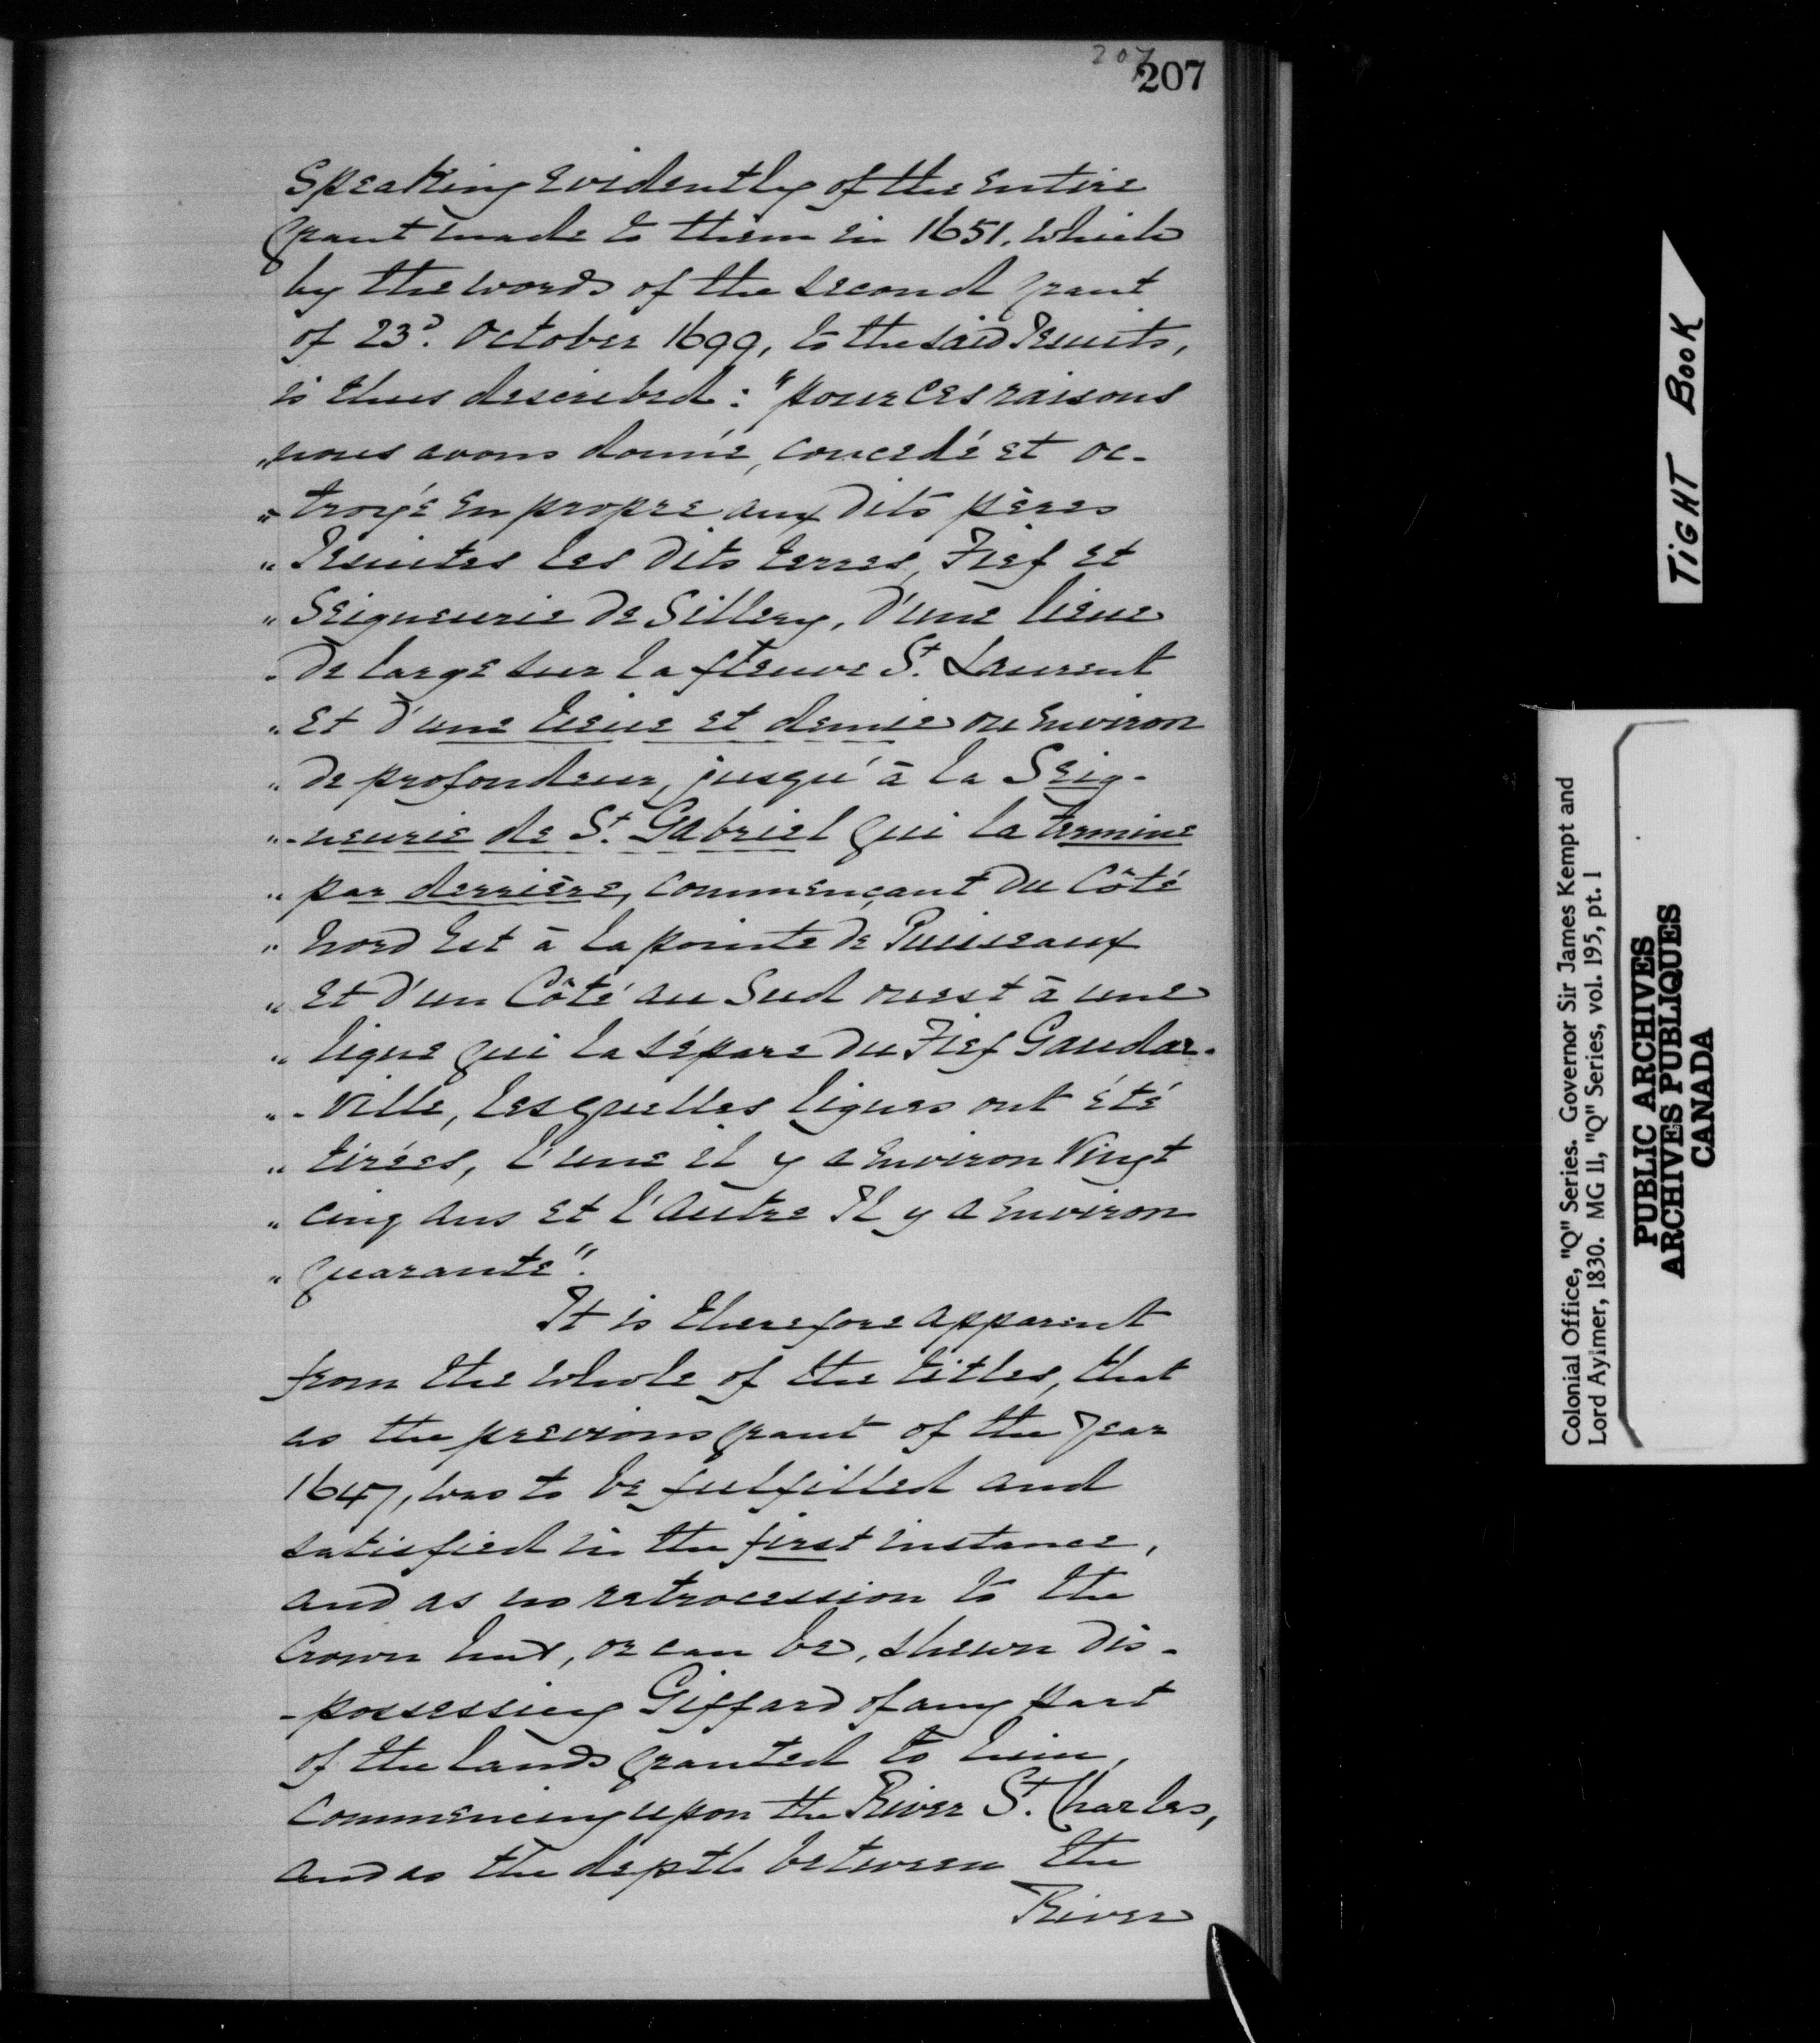 207
207
Speaking evidently of the entire
grant made to them in 1651, which
by the words of the second grant
of 23d. October 1699, to the said Jesuits,
is thus described: "pour ces raisons
"nous avons donné, concedé et oc-
"-troyé en propre aux dits pères
"Jesuites les dits terres, Fief et
"Seigneurie de Sillery, d'une lieue
"de large sur la fleuve St. Laurent
"et d'une lieue et demie ou environ
"de profondeur, jusqu'à la Seig-
"-neurie de St. Gabriel qui la termine
"par derrière, commençant du Côté
"nord Est à la pointe de Puiseaux
"et d'un Côté au Sud ouest à une
"ligne qui la sépare du Fief Gaudar-
"-ville, lesquelles lignes ont été
"tirées, l'une il y a environ vingt
"cinq ans et l'autre Il y a environ
"quarante".
It is therefore apparent
from the whole of the titles, that
as the previous grant of the year
1647, was to be fulfilled and
satisfied in the first instance,
and as no retrocession to the
Crown has, or can be, shewn dis-
-possessing Giffard of any part
of the lands granted to him,
commencing upon the River St. Charles,
and as the depth between the
River
TIGHT BOOK
Colonial Office, "Q" Series. Governor Sir James Kempt and
Lord Aylmer, 1830. MG 11, "Q" Series, vol. 195, pt. 1
PUBLIC ARCHIVES
ARCHIVES PUBLIQUES
CANADA